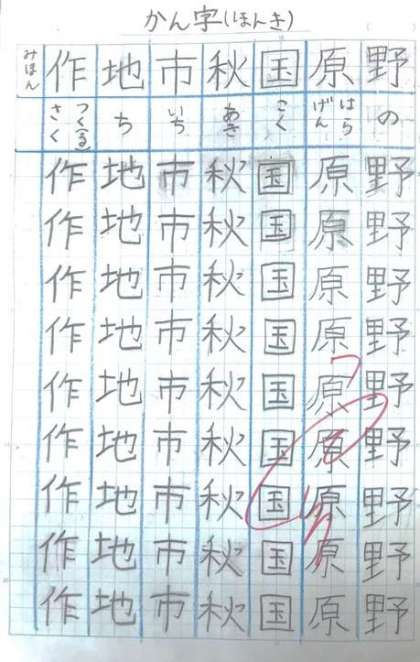 かん字(ほんき)
野 の 野野野野野野野野野
原 はら げん 原原原原原原原原原
国 こく 国国国国国国国国国
秋 あき 秋秋秋秋秋秋秋秋秋
市 いち 市市市市市市市市市
地 ち 地地地地地地地地地
作 つく(る) さく 作作作作作作作作作
みほん